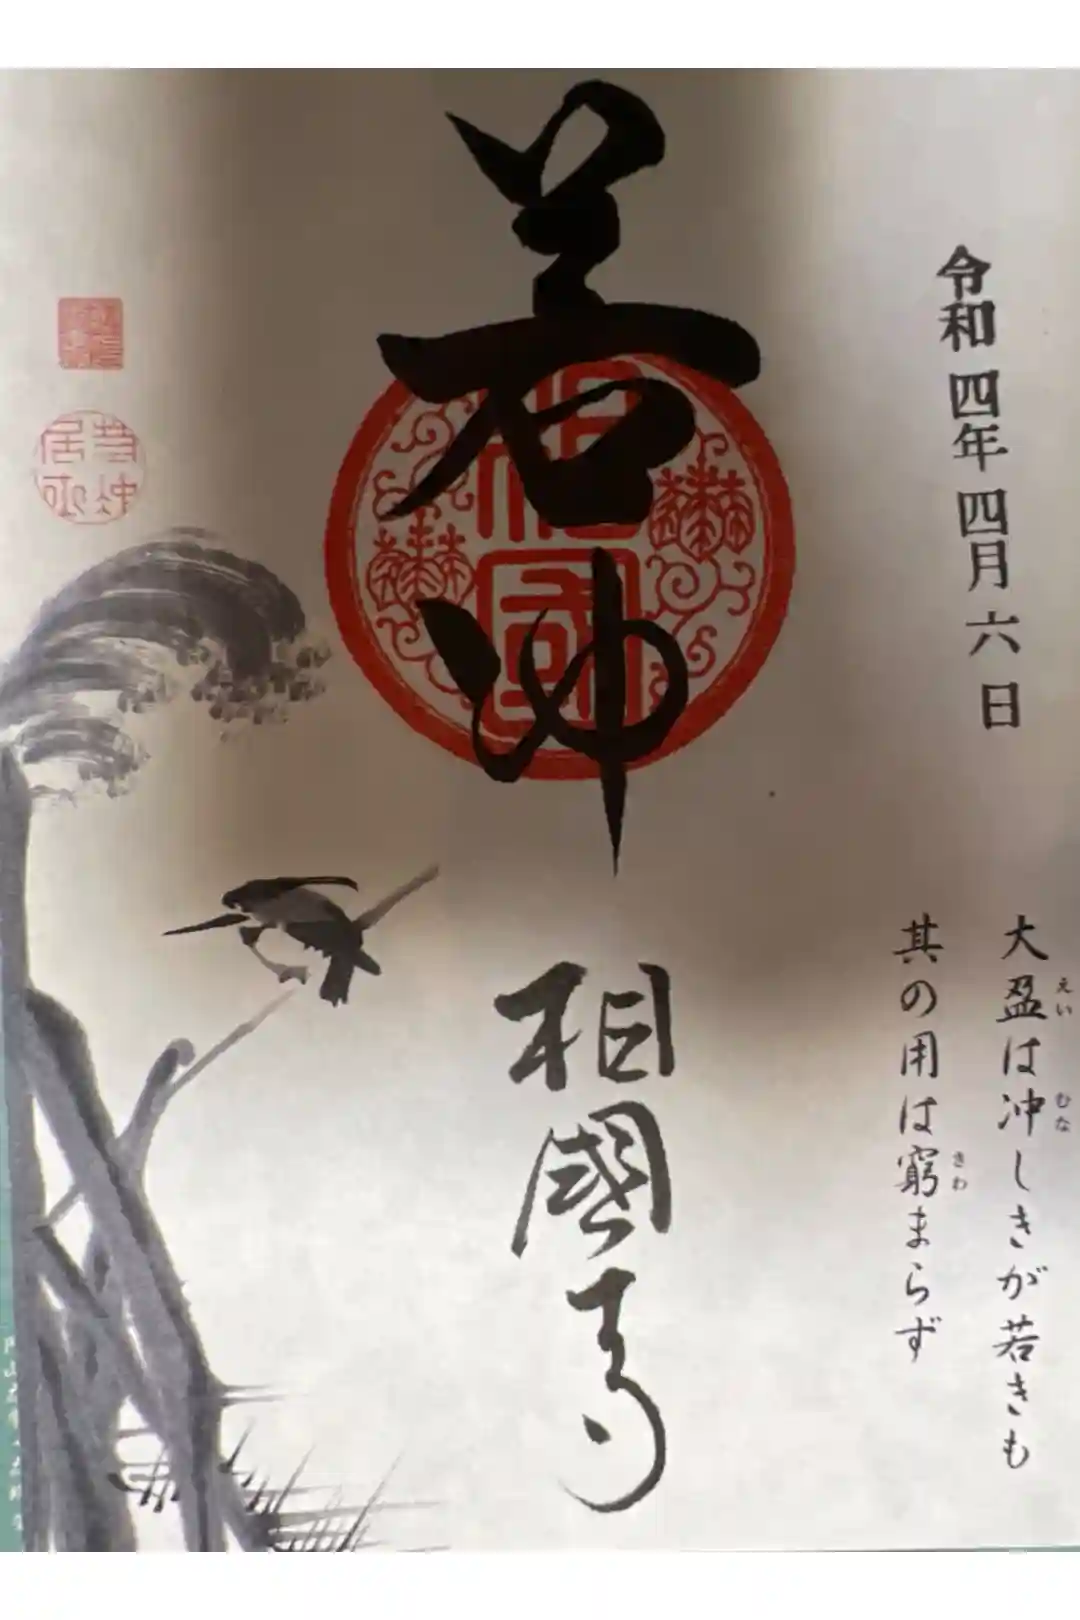 令和四年四月六日
大盈は冲しきが若きも
えい
むな
其の用は窮まらず
きわ
若冲
相國
相國寺
若冲居士